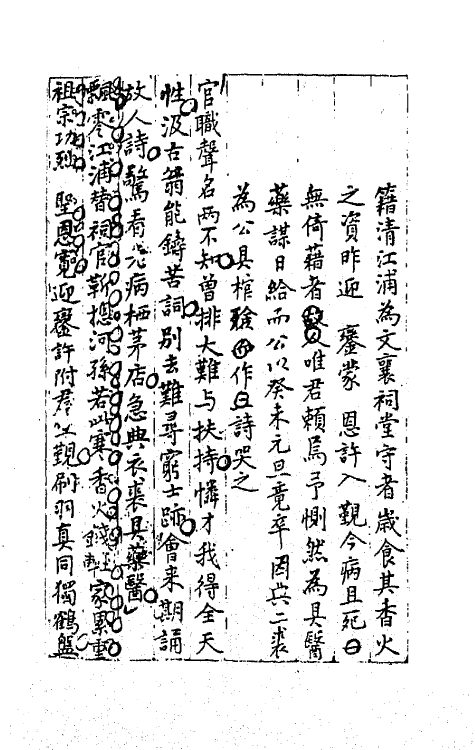 籍清江浦為文襄祠堂守者歲食其香火
之資昨迎鑾蒙恩許入覲今病且死曰
無倚藉者唯君賴焉予惻然為具醫
藥謀日給而公以癸未元旦竟卒因典二裘
為公具棺殮作詩哭之
官職聲名兩不知曾排大難与扶持憐才我得全天
性汲古翁能鑄苦詞別去難尋窮士跡會来期誦
故人詩驚看老病栖茅店急典衣裘具藥醫
飄零江浦替祠官靳總河孫若此寒香火錢家累重
祖宗功烈聖恩寬迎鑾許附群工覲刷羽真同獨鶴盤